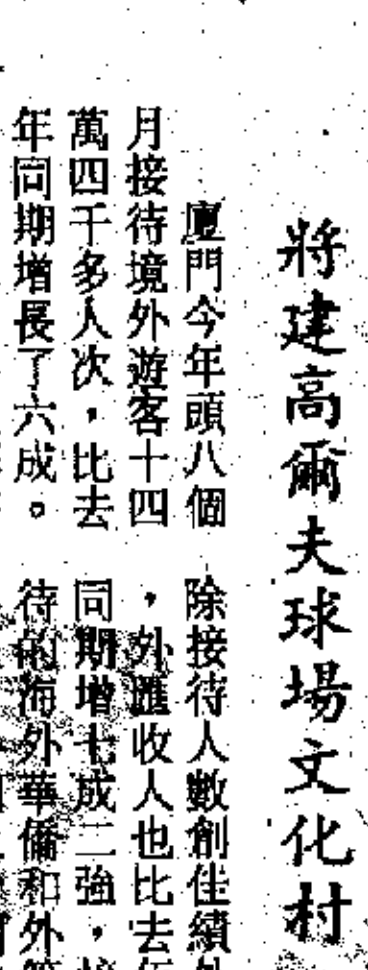 將建高爾夫球場文化村
廈門今年頭八個
月接待境外遊客十四
萬四千多人次，比去
年同期增長了六成。
除接待人數創佳績
，外匯收人也比去
同期增七成二強，
待的海外華僑和外